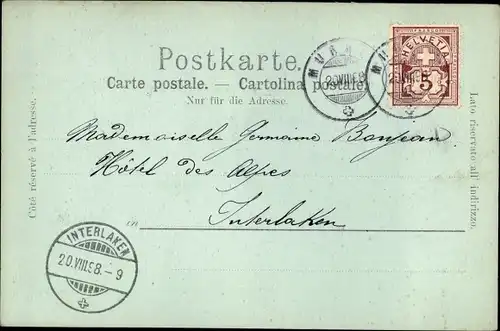 Postkarte.
Carte postale. — Cartolina postale.
Nur für die Adresse.
HELVETIA
5
20.VIII.98
Mademoiselle Germaine Bonjean
Hôtel des Alpes
en Interlaken
INTERLAKEN
20.VIII.98.-9
Côté réservé à l'adresse.
Lato riservato all'indirizzo.